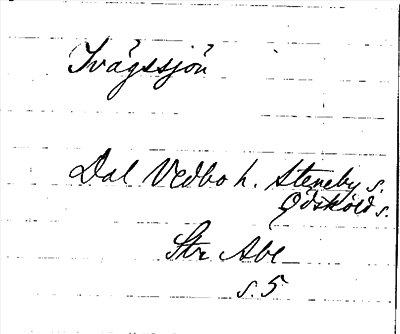 Ivägssjön
Dal Vedbo h. Steneby s.
Ödskölds s.
Str Abl
s. 5